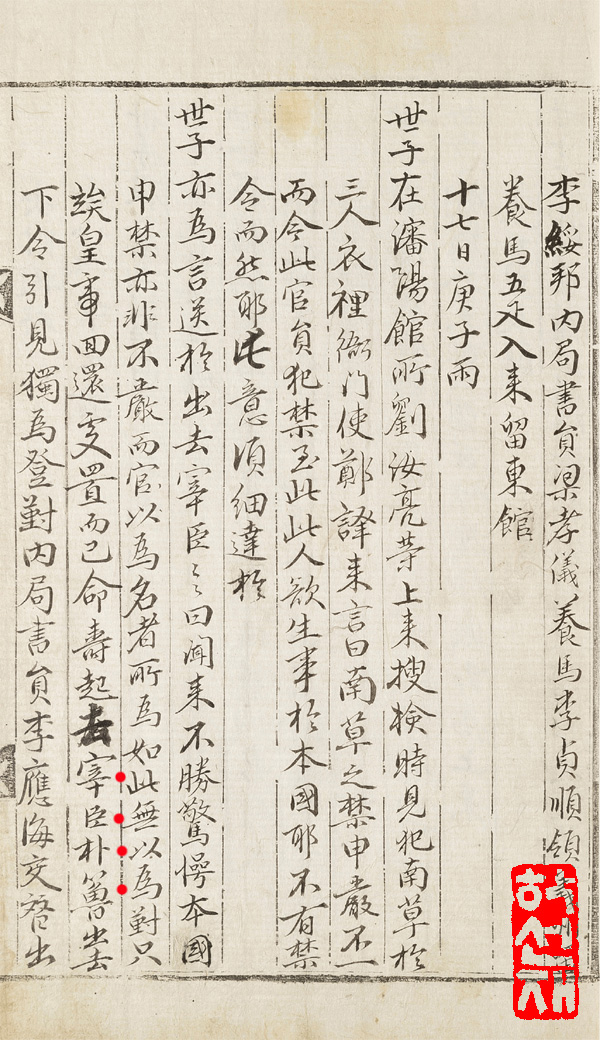 李綏邦內局書員梁孝儀養馬李貞順領義
養馬五疋入来留東館
十七日庚子雨
世子在瀋陽館所劉汝亮等上来搜檢時見犯南草於
三人衣裡衙門使鄭譯来言曰南草之禁申嚴不一
而今此官員犯禁至此此人欲生事於本國耶不有禁
令而然耶此意須細達於
世子亦為言送於出去宰臣々曰聞来不勝驚愕本國
申禁亦非不嚴而官以為名者所為如此無以為對只
竢皇事回還處置而已命壽起去宰臣朴𥶇出去
下令引見獨為登對內局書員李應海交替出
한선재